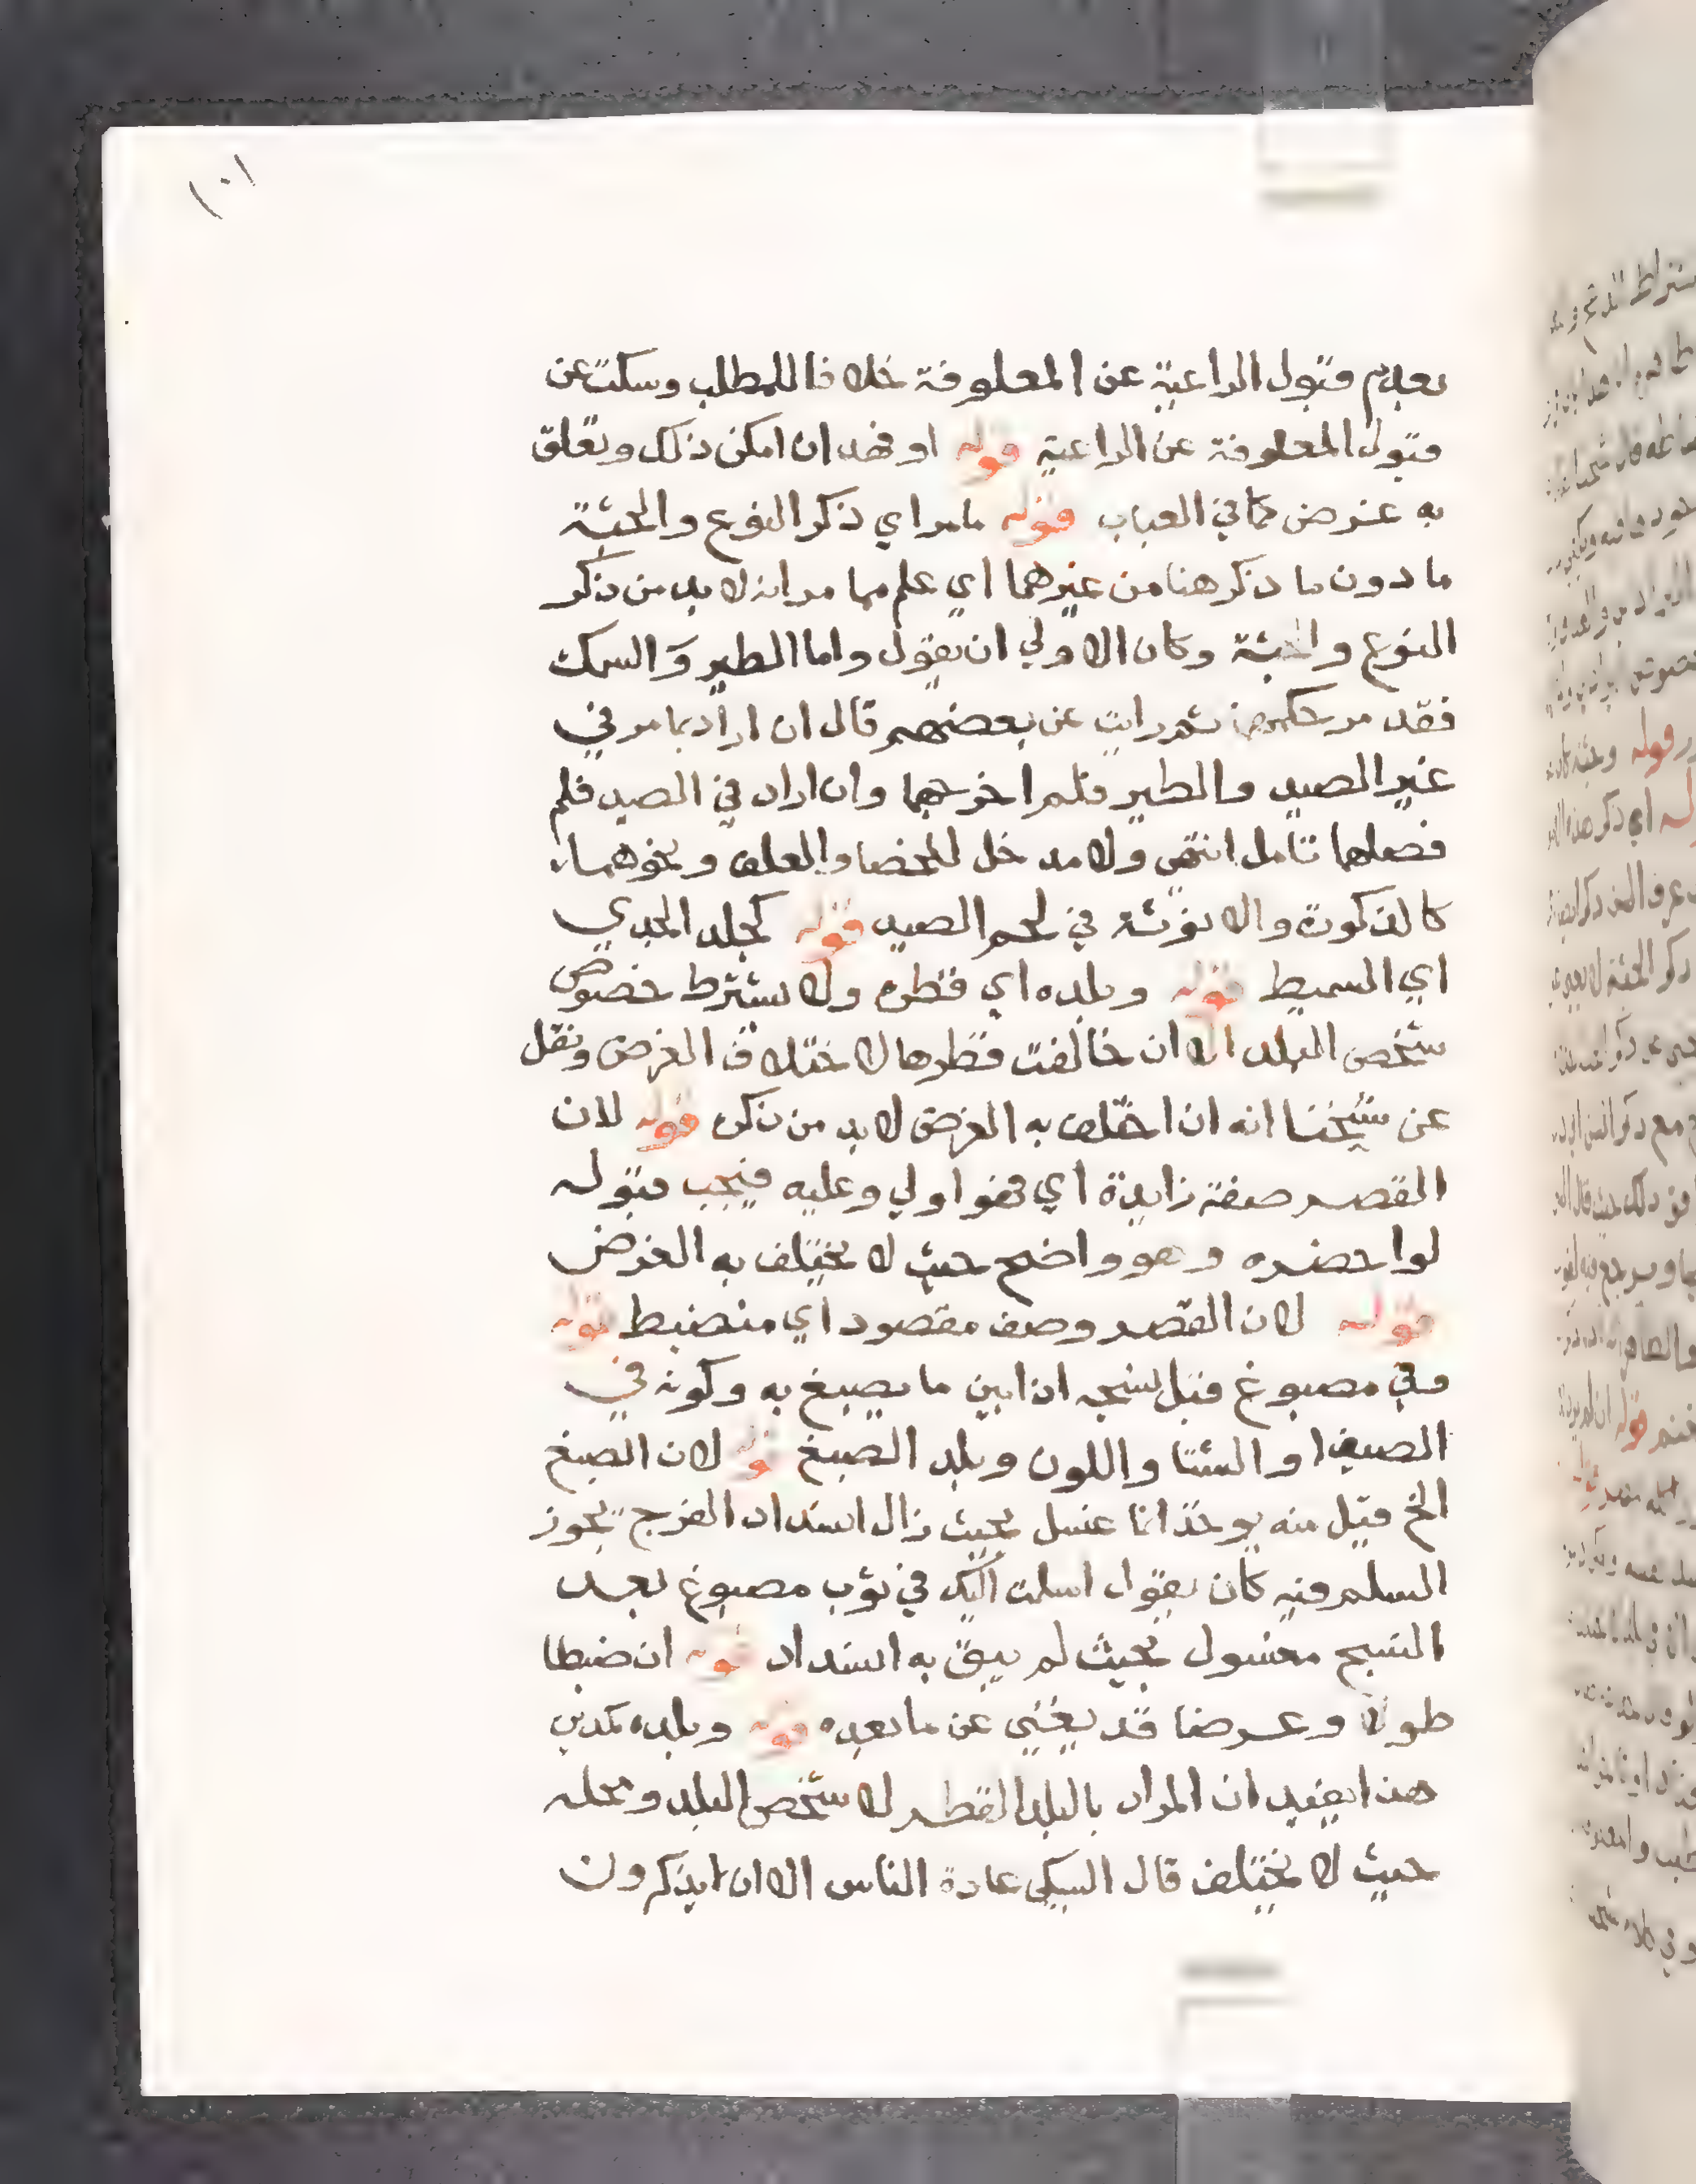 ١٠١
بعدم قبول الراعية عن المعلوفة خلافا للمطلب وسكت عن
قبول المعلوفة عن الراعية قوله او فهد ان امكن ذلك وتعلق
به غرض كما في العباب قوله مامر اي ذكر النوع والجثة
ما دون ما ذكر هنا من غيرهما اي علم مما مر انه لا بد من ذكر
النوع والجثة وكان الاولي ان يقول واما الطير والسمك
فقد مر حكمهما ثم رايت عن بعضهم قال ان اراد بما مر في
غير الصيد والطير فلم اخرجهما وان اراد في الصيد فلم
فصلهما تامل انتهى ولا مدخل للخصا والعلف ونحوهما
كالذكورة والانوثة في لحم الصيد قوله كجلد الجدي
اي السميط قوله وبلده اي قطره ولا يشترط خصوص
شخص البلد الا ان خالفت قطرها لاختلاف الغرض ونقل
عن شيخنا انه ان اختلف به الغرض لا بد من ذكره قوله لان
القصر صفة زايدة اي فهو اولي وعليه فيجب قبوله
لو احضره وهو واضح حيث لا يختلف به الغرض
قوله لان القصر وصف مقصود اي منضبط قوله
وفي مصبوغ قبل نسجه ان ابين ما يصبغ به وكونه في
الصيف او الشتا واللون وبلد الصبغ قوله لان الصبغ
الخ قيل منه يوخذ انا غسل بحيث زال انسداد الفرج يجوز
السلم فيه كان يقول اسلمت اليك في ثوب مصبوغ بعد
النسج مغسول بحيث لم يبق به انسداد قوله ان ضبطا
طولا وعرضا قد يغني عن ما بعده قوله وبلده كمدني
هذا يفيد ان المراد بالبلد القطر لا شخص البلد ومحله
حيث لا يختلف قال السبكي عادة الناس الان لا يذكرون